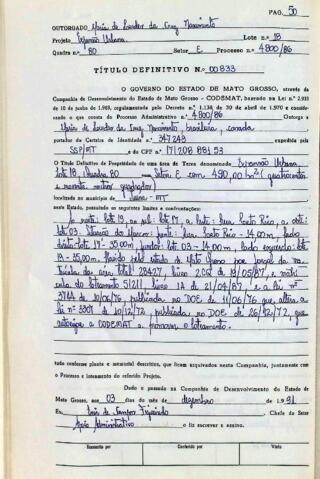 PAG. 50
OUTORGADO Maria de Lourdes da Cruz Nascimento
Projeto Expansão Urbana Lote n.º 18
Quadra n.º 80 Setor E Processo n.º 4800/86
TÍTULO DEFINITIVO N.º 00833
O GOVERNO DO ESTADO DE MATO GROSSO, através da
Companhia de Desenvolvimento do Estado de Mato Grosso - CODEMAT, baseando na Lei n.º 2.931
de 10 de junho de 1.969, regulamentada pelo Decreto n.º 1.138, de 30 de abril de 1.970 e considerando
o que consta do Processo Administrativo n.º 4800/86 Outorga a
Maria de Lourdes da Cruz Nascimento, brasileira, casada
portador da Carteira de Identidade n.º 347243 expedida pela
SSP/MT e do CPF n.º 171 208 881 53
O Título Definitivo de Propriedade de uma área de Terras denominada Expansão Urbana
Lote 18, Quadra 80 Setor E com 490,00 m² (quatrocentos
e noventa metros quadrados)
localizada no município de Juína - MT
neste Estado, possuindo os seguintes limites e confrontações:
Ao norte: lote 19, ao sul: lote 17, a leste: Rua Porto Rico, a oeste:
lote 03. frente: Rua Porto Rico - 14,00m, lado
direito: lote 17 - 35,00m, fundos: lote 03 - 14,00m, lado esquerdo: lote
19 - 35,00m. pelo estado de Mato Grosso por
área total 28427, livro 2CG de 18/05/87, e matrí
cula do loteamento 51211 livro 1A de 21/04/87 e a lei nº
3744 de 10/06/76, publicada no DOE de 11/06/76 que altera a
lei nº 3307 de 10/12/72, publicada no DOE de 26/12/72, que
autoriza a CODEMAT a promover o loteamento.
tudo conforme planta e memorial descritivo, que ficam arquivados nesta Companhia, juntamente com
o Processo e loteamento do referido Projeto.
Dado e passado na Companhia de Desenvolvimento do Estado de
Mato Grosso, aos 03 dias do mês de dezembro de 1991
Eu, Figueiredo Chefe do Setor
Apoio Administrativo o fiz escrever e assino.
Escrito por Conferido por Visto